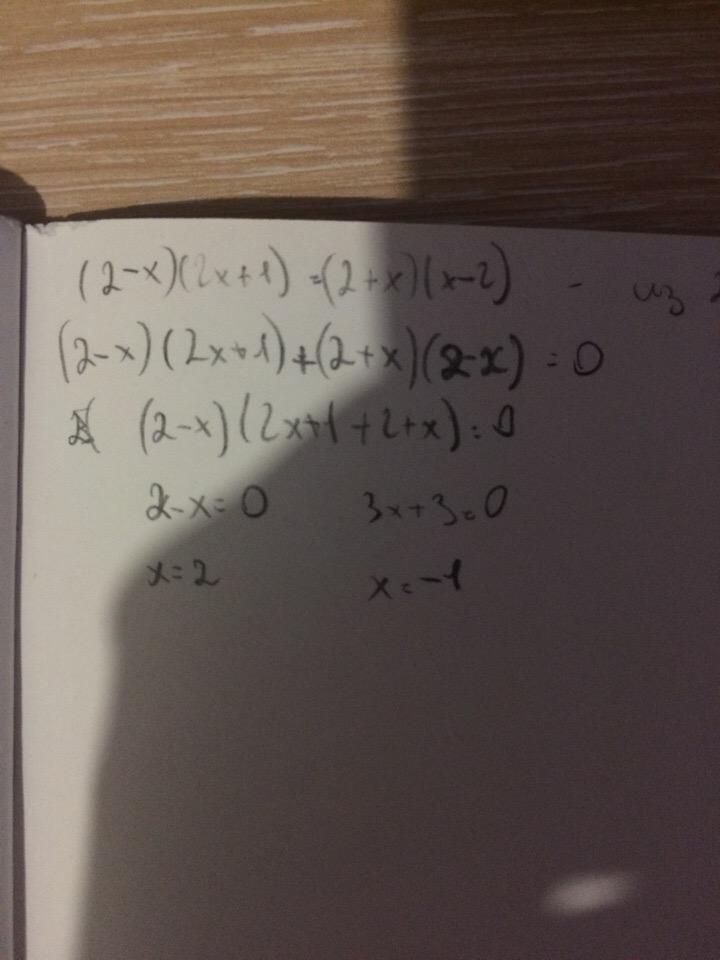 (2-x)(2x+1) = (2+x)(x-2) - из
(2-x)(2x+1)+(2+x)(2-x) = 0
(2-x)(2x+1+2+x) = 0
2-x=0 3x+3=0
x=2 x=-1